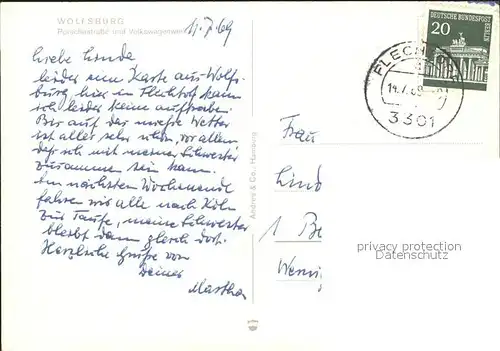 WOLFSBURG
Porschestraße und Volkswagenwerk
11.7.69
Liebe Linde
leider eine Karte aus Wolfs-
burg hier in Flechtorf kann
ich leider keine auftreiben.
Bis auf das nasse Wetter
ist alles sehr schön, vor allem
daß ich mit meiner Schwester
zusammen sein kann.
Am nächsten Wochenende
fahren wir alle nach Köln
zur Taufe, meine Schwester
bleibt dann gleich dort.
Herzliche Grüße von
Deiner
Martha
Andres & Co., Hamburg
DEUTSCHE BUNDESPOST
BERLIN
20
FLECH
14.7.69
3301
Frau
Lind
1 Be
privacy protection
Datenschutz